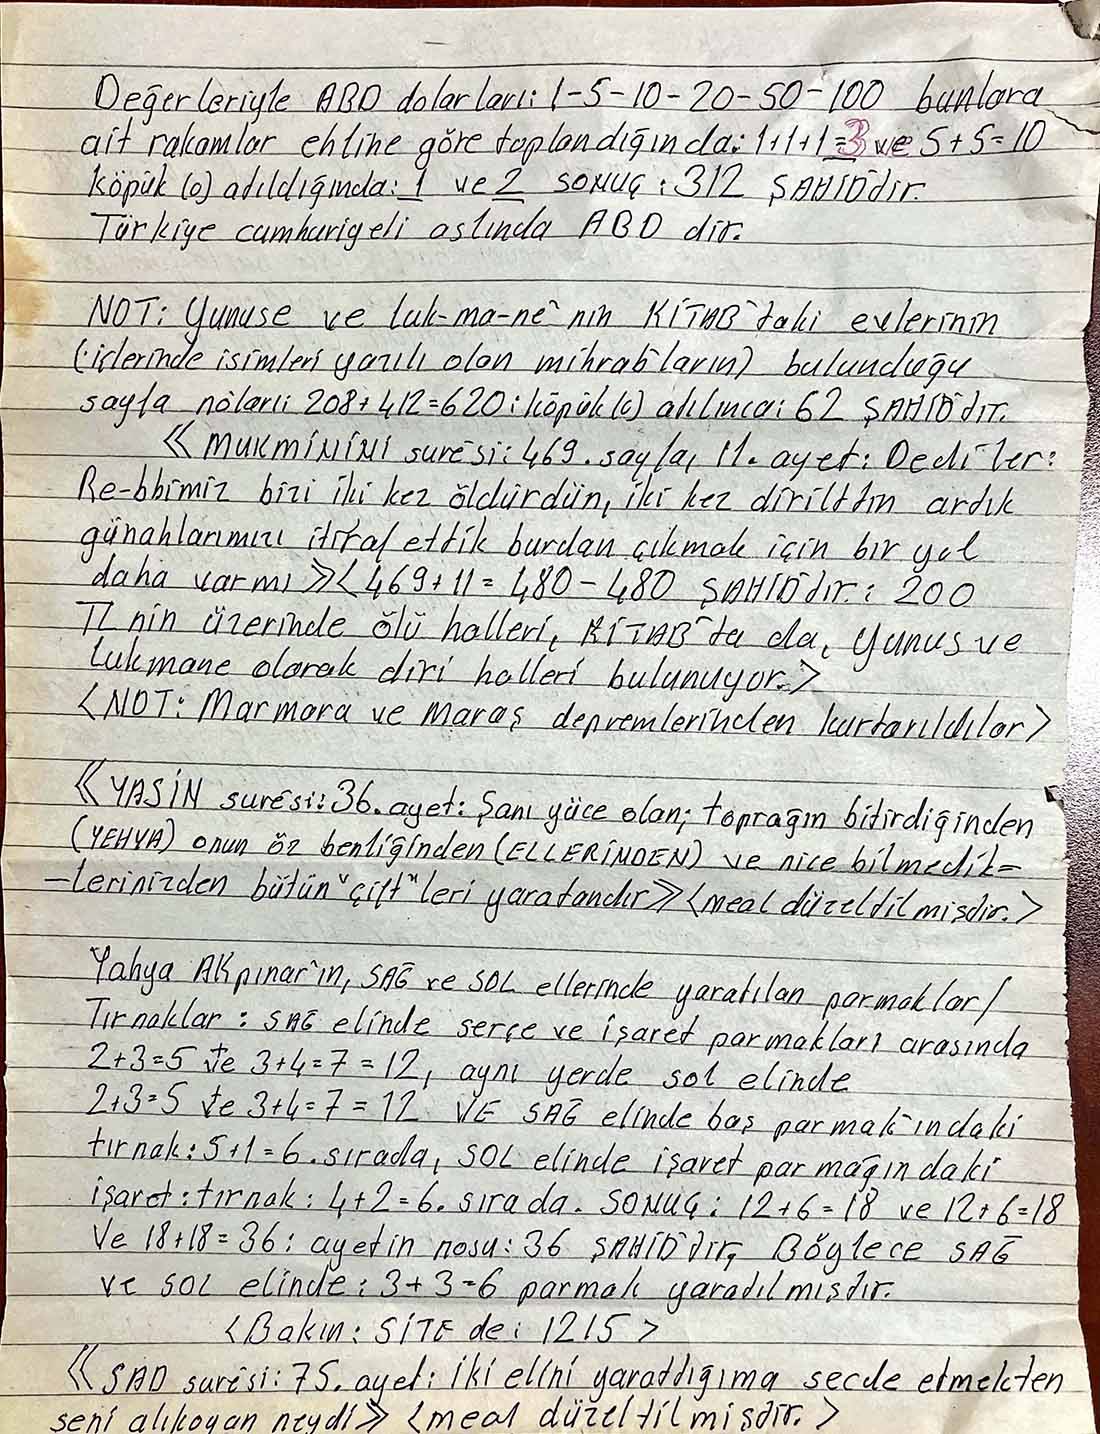 Değerleriyle ABD dolarları: 1-5-10-20-50-100 bunlara
ait rakamlar ehline göre toplandığında: 1+1+1=3 ve 5+5=10
köpük (0) atıldığında: 1 ve 2 SONUÇ: 312 ŞAHİD'dir.
Türkiye cumhuriyeti aslında ABD dir.
NOT: Yunuse ve luk-ma-ne'nin KİTAB'taki evlerinin
(:içlerinde isimleri yazılı olan mihrab'ların) bulunduğu
sayfa nöları: 208+412=620: köpük (0) atılınca: 62 ŞAHİD'dir.
《MUKMİNİNİ surêsi: 469. sayfa, 11. ayet: Dediler:
Re-bbimiz bizi iki kez öldürdün, iki kez dirilttin ardık
günahlarımızı itiraf ettik burdan çıkmak için bir yol
daha varmı》<469+11=480-480 ŞAHİD'dir.: 200
TLnin üzerinde ölü halleri, KİTAB'ta da, Yunus ve
lukmane olarak diri halleri bulunuyor.>
<NOT: Marmara ve Maraş depremlerinden kurtarıldılar>
《YASİN surêsi: 36. ayet: Şanı yüce olan; toprağın bitirdiğinden
(YEHYA) onun öz benliğinden (ELLERİNDEN) ve nice bilmedik=
-lerinizden bütün "çift"leri yaratandır》<meal düzeltilmişdir.>
Yahya AKpınar'ın, SAĞ ve SOL ellerinde yaratılan parmaklar/
Tırnaklar: SAĞ elinde serçe ve işaret parmakları arasında
2+3=5 + ve 3+4=7=12, aynı yerde sol elinde
2+3=5 + ve 3+4=7=12 VE SAĞ elinde baş parmak'ındaki
tırnak: 5+1=6. sırada, SOL elinde işaret parmağındaki
işaret: tırnak: 4+2=6. sırada. SONUÇ: 12+6=18 ve 12+6=18
Ve 18+18=36: ayetin nosu: 36 ŞAHİD'dir, Böylece SAĞ
ve SOL elinde: 3+3=6 parmak yaratılmışdır.
<Bakın: SİTE de: 1215>
《SAD surêsi: 75. ayet: İki elini yarattığıma secde etmekten
seni alıkoyan neydi》<meal düzeltilmişdir.>